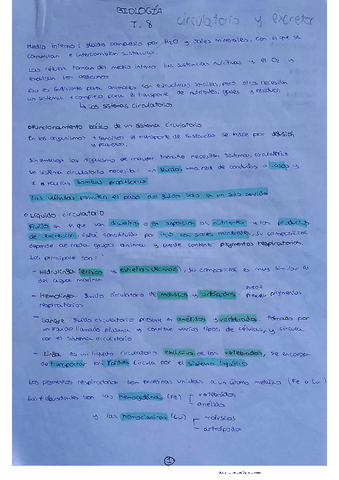 BIOLOGÍA
T. 8 circulatorio y excretor
Medio interno: fluido compuesto por H₂O y sales minerales, con el que se
comunican e intercambian sustancias.
Las células toman del medio interno las sustancias nutritivas y el O₂ y
los desechos.
Eso es suficiente para animales con estructuras sencillas, pero otros necesitan
un sistema + complejo para el transporte de nutrientes, gases y residuos
↳ Los sistemas circulatorios
Funcionamiento básico de un sistema circulatorio
En los organismos + sencillos el transporte de sustancias se hace por difusión
Sin embargo los organismos de mayor tamaño necesitan sistemas circulatorios
Un sistema circulatorio necesita: un fluido, una red de conductos o vasos y
bombas propulsoras
Las válvulas permiten el paso del fluido solo en un solo sentido
Líquido circulatorio
Fluido en el que van disueltos o en suspensión los nutrientes y los productos
de excreción. Está constituido por H₂O con sales minerales, su composición
depende de cada grupo animal y puede contener pigmentos respiratorios.
Los principales son:
- Hidrolinfa: , su composición es muy similar a la
del agua marina
- Hemolinfa: fluido circulatorio de moluscos y artrópodos, pigmentos
respiratorios
- Sangre: fluido circulatorio presente en anélidos y vertebrados. Formado por
un líquido llamado plasma y contiene varios tipos de células, y circula
por el sistema circulatorio
- Linfa: es un líquido circulatorio exclusivo de los vertebrados, se encarga
de transportar los lípidos. Circula por el sistema linfático
Los pigmentos respiratorios son proteínas unidas a un átomo metálico (Fe o Cu)
Los + abundantes son las hemoglobinas (Fe) vertebrados
anélidos
y las hemocianinas (Cu) - moluscos
- artrópodos
1